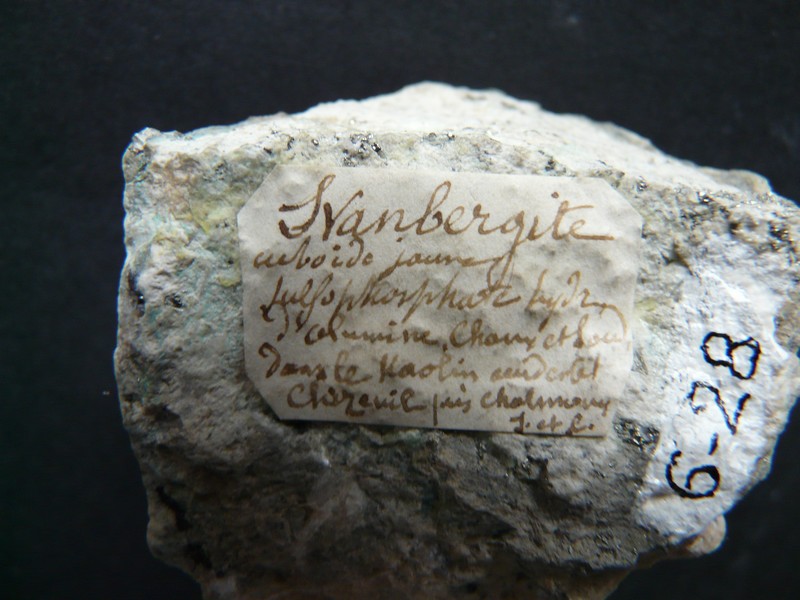 Svanbergite
cuboide jaune
sulfophosphate hydr
d'alumine, Chaux et Soud
dans le Kaolin
Chizeuil près Chalmoux
S. et L.
6-28